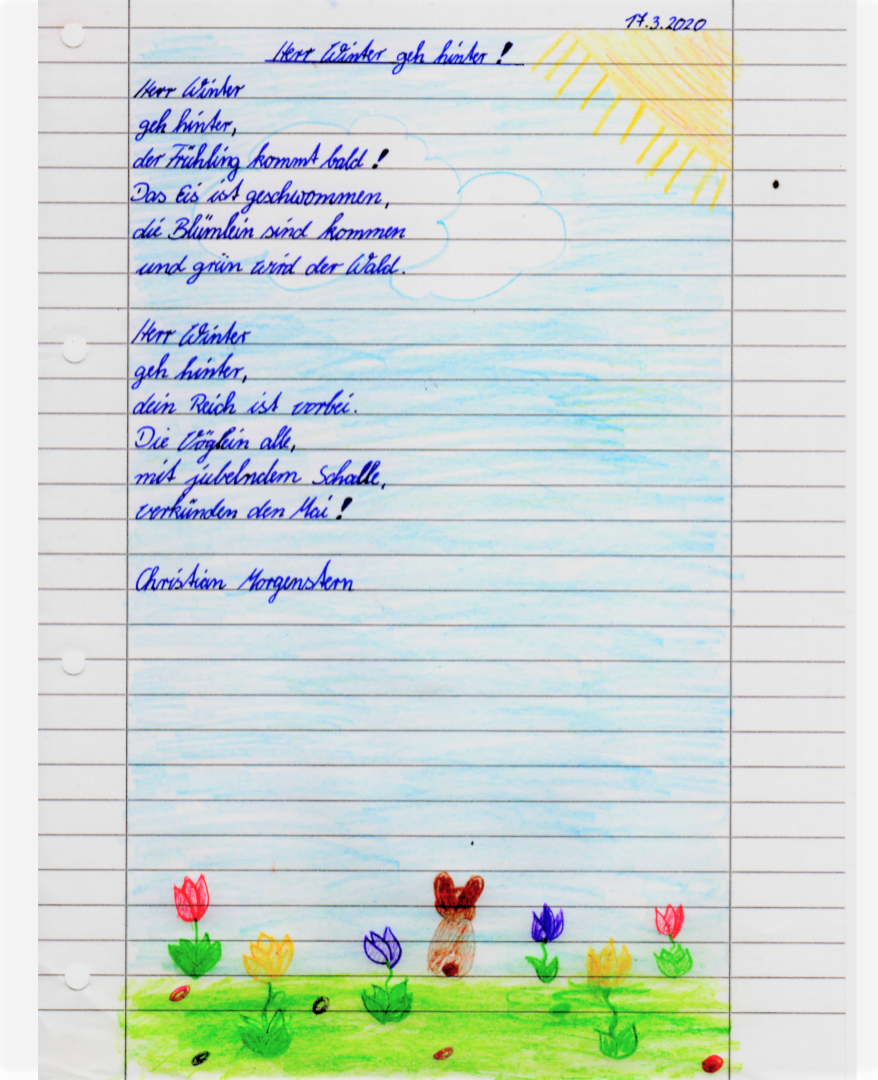 17.3.2020
Herr Winter geh hinter!
Herr Winter
geh hinter,
der Frühling kommt bald!
Das Eis ist geschwommen,
die Blümlein sind kommen
und grün wird der Wald.
Herr Winter
geh hinter,
dein Reich ist vorbei.
Die Vöglein alle,
mit jubelndem Schalle,
verkünden den Mai!
Christian Morgenstern